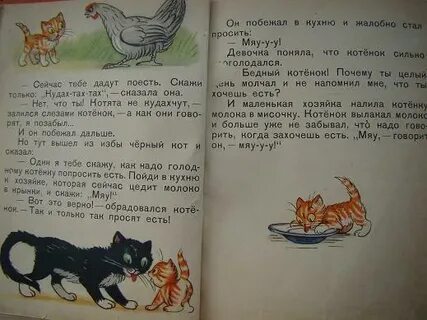 — Сейчас тебе дадут поесть. Скажи
только: „Кудах-тах-тах", — сказала она.
— Нет, что ты! Котята не кудахчут, —
залился слезами котёнок, — а как они гово-
рят, я позабыл...
И он побежал дальше.
Но тут вышел из избы чёрный кот и
сказал:
— Один я тебе скажу, как надо голод-
ному котёнку попросить есть. Пойди в кухню
к хозяйке, которая сейчас цедит молоко
в крынки, и скажи: „Мяу!"
— Вот это верно! — обрадовался котё-
нок. — Так и только так просят есть!
Он побежал в кухню и жалобно стал
просить:
— Мяу-у-у!
Девочка поняла, что котёнок сильно
проголодался.
— Бедный котёнок! Почему ты целый
день молчал и не напомнил мне, что ты
хочешь есть?
И маленькая хозяйка налила котёнку
молока в мисочку. Котёнок вылакал молоко
и больше уже не забывал, что надо гово-
рить, когда захочешь есть. "Мяу, — говорит
он, — мяу-у-у!"